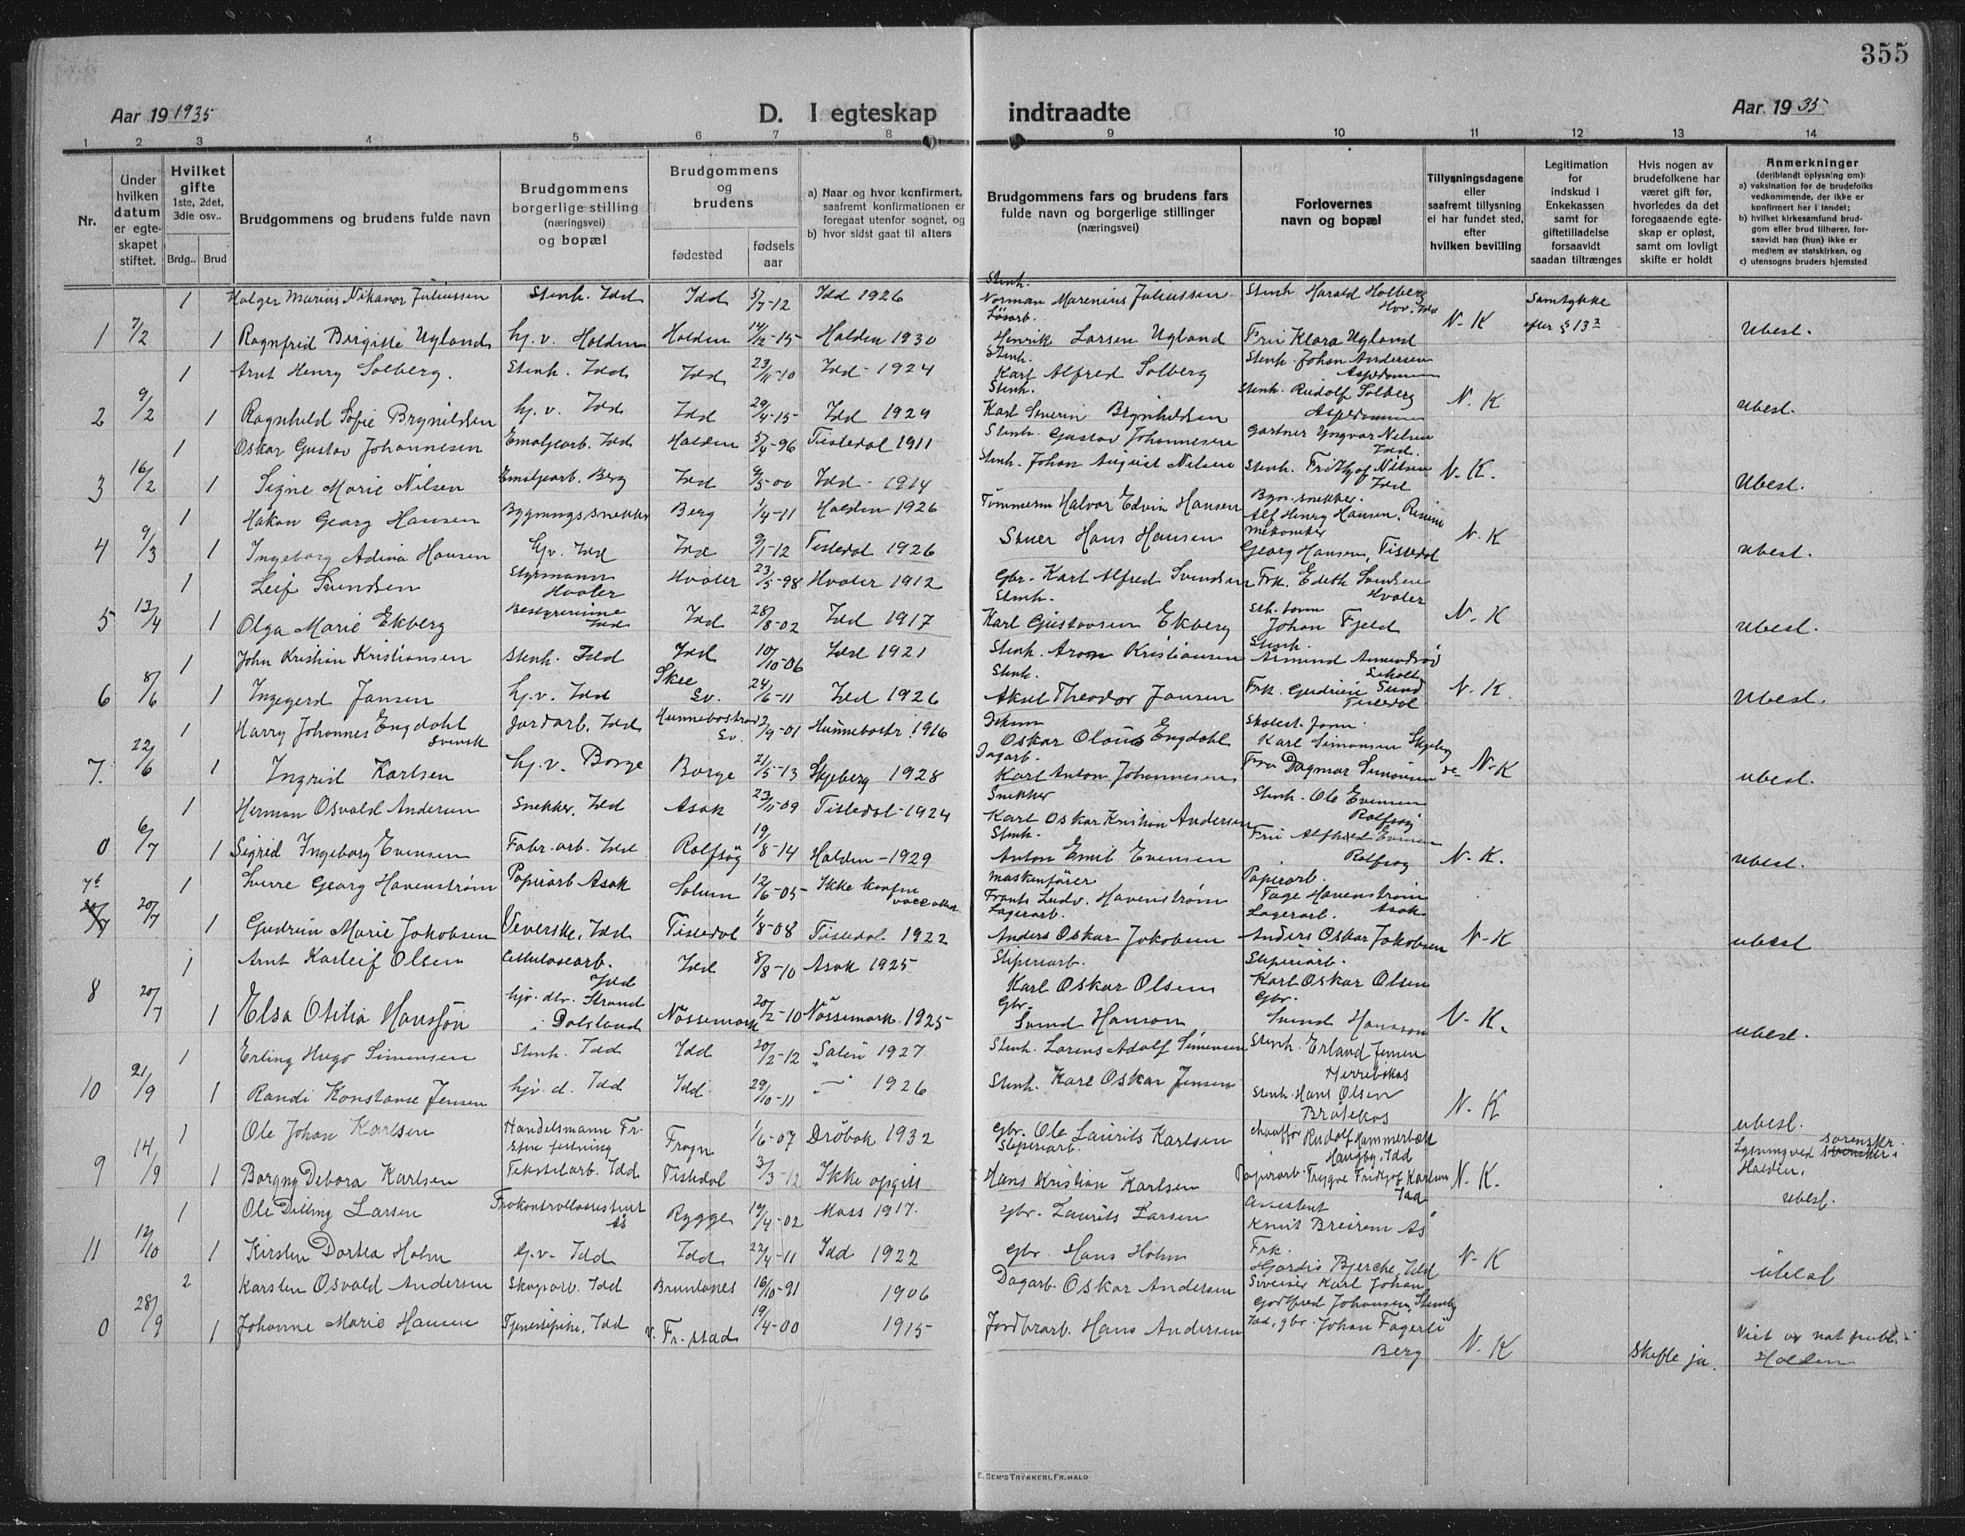 355
Aar 19 1935 D. I egteskap indtraadte Aar. 19 35
1 2 3 4 5 6 7 8 9 10 11 12 13 14
Nr.
Under hvilken datum er egteskapet stiftet.
Hvilket gifte 1ste, 2det, 3die osv..
Brdg.. Brud
Brudgommens og brudens fulde navn
Brudgommens borgerlige stilling (næringsvei) og bopæl
Brudgommens og brudens
fødested fødsels aar
a) Naar og hvor konfirmert, saafremt konfirmationen er foregaat utenfor sognet, og
b) hvor sidst gaat til alters
Brudgommens fars og brudens fars fulde navn og borgerlige stillinger (næringsvei)
Forlovernes navn og bopæl
Tillysningsdagene eller saafremt tillysning ei har fundet sted, efter hvilken bevilling
Legitimation for indskud i Enkekassen samt for giftetilladelse forsaavidt saadan tiltrænges
Hvis nogen av brudefolkene har været gift før, hvorledes da det foregaaende egteskap er opløst, samt om lovligt skifte er holdt
Anmerkninger (deriblandt oplysning om):
a) vaksination for de brudefolks vedkommende, der ikke er konfirmert her i landet;
b) hvilket kirkesamfund brudgom eller brud tilhører, forsaavidt han (hun) ikke er medlem av statskirken, og
c) utensogns bruders hjemsted
1 Holger Marius Nikanor Juliussen Stenh. Idd Idd 5/7-12 Idd 1926 Stenh. Norman Marenius Juliussen Stenh Harald Holberg Hov. Idd Samtykke
1 7/2 1 Ragnfrid Birgitte Ugland hj.v. Halden Halden 14/12-15 Halden 1930 Løsarb. Henrik Larsen Ugland Fru Klara Ugland N.K efter § 13 3 Ubest.
1 Arnt Henry Solberg. Stenh. Idd Idd 23/11-10 Idd - 1924 Stenh. Karl Alfred Solberg Stenh. Johan Andersen Aspedammen
2 9/2 1 Ragnhild Sofie Brynildsen hj.v. Idd Idd 29/4-15 Idd - 1929 Stenh. Karl Severin Brynildsen Stenh. Rudolf Solberg Aspedammen N.K ubest.
1 Oskar Gustav Johannesen Emaljearb. Idd Halden 5/4-96 Tistedal 1911 Stenh. Gustav Johannesen Gartner Yngvar Nilsen Idd.
3 16/2 1 Signe Marie Nilsen Emaljearb. Berg Idd 9/5-00 Idd - 1914 Stenh. Johan August Nilsen Stenh. Frithjof Nilsen Idd N.K. Ubest.
1 Håkon Georg Hansen Bygningssnekker Berg 1/4-11 Halden 1926 Tømmerm Halvor Edvin Hansen Bgn. snekker. Alf Henry Hansen,
4 9/3 1 Ingeborg Adina Hansen hjv. Idd Idd 9/1-12 Tistedal 1926 Stuer Hans Hansen Georg Hansen, Tistedal N.K ubest.
1 Leif Svendsen Styrmann Hvaler Hvaler 23/5-98 Hvaler 1912 Gbr. Karl Alfred Svendsen Frk. Edith Svendsen Hvaler
5 13/4 1 Olga Marie Ekberg Bestyrerinne Idd Idd 28/8-02 Idd 1917 Stenh. Karl Gustavsen Ekberg Johan Fjeld N.K ubest.
1 John Kristian Kristiansen Stenh. Idd Idd 10/10-06 Idd 1921 Stenh. Aron Kristiansen Stenh. Asmund
6 8/6 1 Ingegerd Jansen hj.v. Idd Skee Sv. 24/6-11 Idd 1926 Stenh. Aksel Theodor Jansen Frk. Gudrun Sund Tistedal N.K. Ubest.
1 Harry Johannes Engdahl Svensk Jordarb. Idd Hunnebostrand Sv. 2/9-01 Hunnebostr 1916 Oskar Olaus Engdahl Skolest. Karl Simonsen Skjeberg
7. 22/6 1 Ingrid Karlsen hj.v. Borge Borge 21/5-13 Skjeberg 1928 Dagarb. Karl Anton Johannesen Fru Dagmar Simonsen de N-K ubest.
1 Herman Osvald Andersen Snekker. Idd Asak 23/11-09 Tistedal-1924 Snekker Karl Oskar Kristian Andersen Stenh. Ole Evensen Rolfsøy
0 6/7 1 Sigrid Ingeborg Evensen Fabr. arb. Idd Rolfsøy 19/8-14 Halden - 1929 Stenh. Anton Emil Evensen Fru Alfhild Evensen Rolfsøy N.K. ubest.
1 Sverre Georg Havenstrøm Papirarb Asak Solum 12/6-05 Ikke konfm Maskenfører Frants Ludv. Havenstrøm Papirarb. Tage Havenstrøm Asak
7b 20/7 1 Gudrun Marie Jakobsen Veverske. Idd Tistedal 1/8-08 Tistedal 1922 Lagerarb. Anders Oskar Jakobsen Lagerarb. Anders Oskar Jakobsen N-K ubest
1 Arnt Karleif Olsen Cellulosearb. Idd Idd 8/8-10 Asak 1925 Sliperiarb. Karl Oskar Olsen Sliperiarb. Karl Oskar Olsen
8 20/7 1 Elsa Otilia Hansson hjv. dtr. Strand i Dalsland Nössemark 20/2-10 Nössemark. 1925 Gbr. Svend Hanson Gbr. Svend Hansson N.K. ubest.
1 Erling Hugo Simensen Stenh. Idd Idd 20/2-12 1927 Stenh. Lorens Adolf Simensen Stenh. Erland Jensen Herrebøkas
10 21/9 1 Randi Konstanse Jensen hjv. d. Idd Idd. 29/10-11 " 1926 Stenh. Karl Oskar Jensen Stenh. Hans Olsen N.K ubest.
1 Ole Johan Karlsen Handelsmann Frogn 1/6-07 Drøbak 1932 Gbr. Ole Laurits Karlsen chauffør Rudolf Idd Lysning ved sorenskr. i Halden.
9 14/9 1 Borgny Debora Karlsen Tekstilarb. Idd Tistedal 3/3-12 Ikke opgitt Sliperiarb. Hans Kristian Karlsen Papirarb. Trygve Fridtjof Karlsen Idd N.K. ubest.
1 Ole Dilling Larsen Ås Rygge 19/4-02 Moss 1917. Gbr. Laurits Larsen Assistent Knut Breirem Ås
11 12/10 1 Kirsten Dortea Holm hj.v. Idd Idd 22/4-11 Idd 1922 Gbr. Hans Holm Frk. Hjørdis Bjerche, Idd N.K ubest
2 Karsten Osvald Andersen Skoparb. Idd Brunlanes 16/10-91 1906 Dagarb. Oskar Andersen Karl Johan Godtfred Johansen,
0 28/9 1 Johanne Marie Hansen Tjenestepike, Idd Fr.stad 19/4-00 1915 Jordbrarb. Hans Andersen Idd, gbr. Johan Fagerli Berg N.K Skifte ja. Viet av not. publ. i Halden
E. SEM'S TRYKKERI, FR.HALD